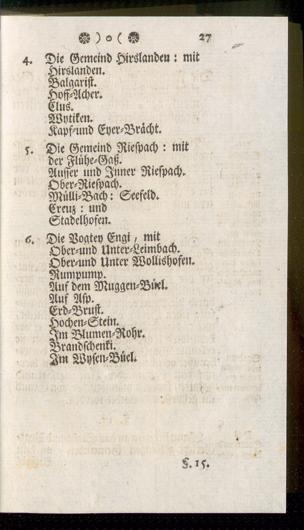 ❁ ) o ( ❁ 27
4. Die Gemeind Hirslanden : mit
Hirslanden.
Balgarist.
Hoff-Acher.
Clus.
Wytiken.
Kapf-und Eyer-Brächt.
5. Die Gemeind Riespach : mit
der Flühe-Gaß.
Ausser und Inner Riespach.
Ober-Riespach.
Mülli-Bach : Seefeld.
Creuz : und
Stadelhofen.
6. Die Vogtey Engi, mit
Ober-und Unter-Leimbach.
Ober-und Unter Wollishofen.
Rumpump.
Auf dem Muggen-Büel.
Auf Asp.
Erd-Brust.
Hochen-Stein.
Im Blumen-Rohr.
Brandschenki.
Im Wysen-Büel.
§. 15.